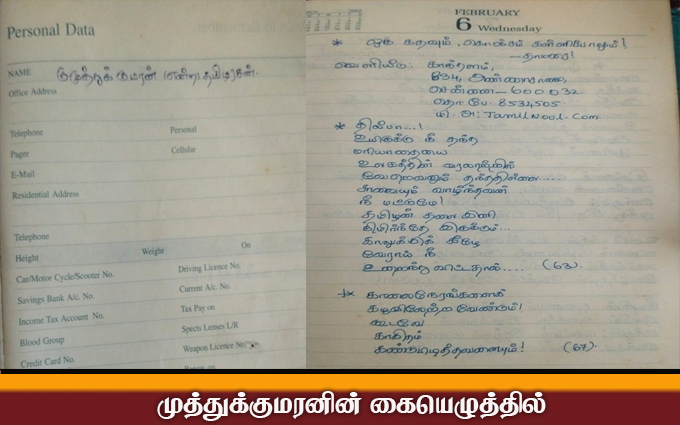 Personal Data
NAME முத்துக்குமரன் (என்ற) தமிழரசன்.
Office Address
Telephone Personal
Pager Cellular
E-Mail
Residential Address
Telephone
Height Weight On
Car/Motor Cycle/Scooter No. Driving Licence No.
Savings Bank A/c. No. Current A/c. No.
Income Tax Account No. Tax Pay on
Blood Group Spects Lenses L/R
Credit Card No. Weapon Licence No
FEBRUARY
6 Wednesday
* ஒரு கதவும், கொஞ்சம் கள்ளிப்பாலும்!
- தாமரை!
வெளியீடு: காந்தளம்,
834, அண்ணாசாலை,
சென்னை - 600032.
தொ.பே. 8534505
மி. அ: Tamilnool.com
* திலீபா...!
உயிருக்கு நீ தந்த
மரியாதையை
உலகத்தின் வரலாற்றில்
வேறெவனும் தந்ததில்லை....
சாவையும் வாழ்ந்தவன்
நீ மட்டுமே!
தமிழன் தலை இனி
நிமிர்ந்தே இருக்கும்...
காலுக்குக் கீழே
வேராய் நீ
உறைந்து விட்டதால்.... (63).
* காலைநேரங்களைக்
கழுவிலேற்ற வேண்டும்!
கூடவே
காகிதம்
கண்டுபிடித்தவனையும்! (67).
முத்துக்குமரனின் கையெழுத்தில்